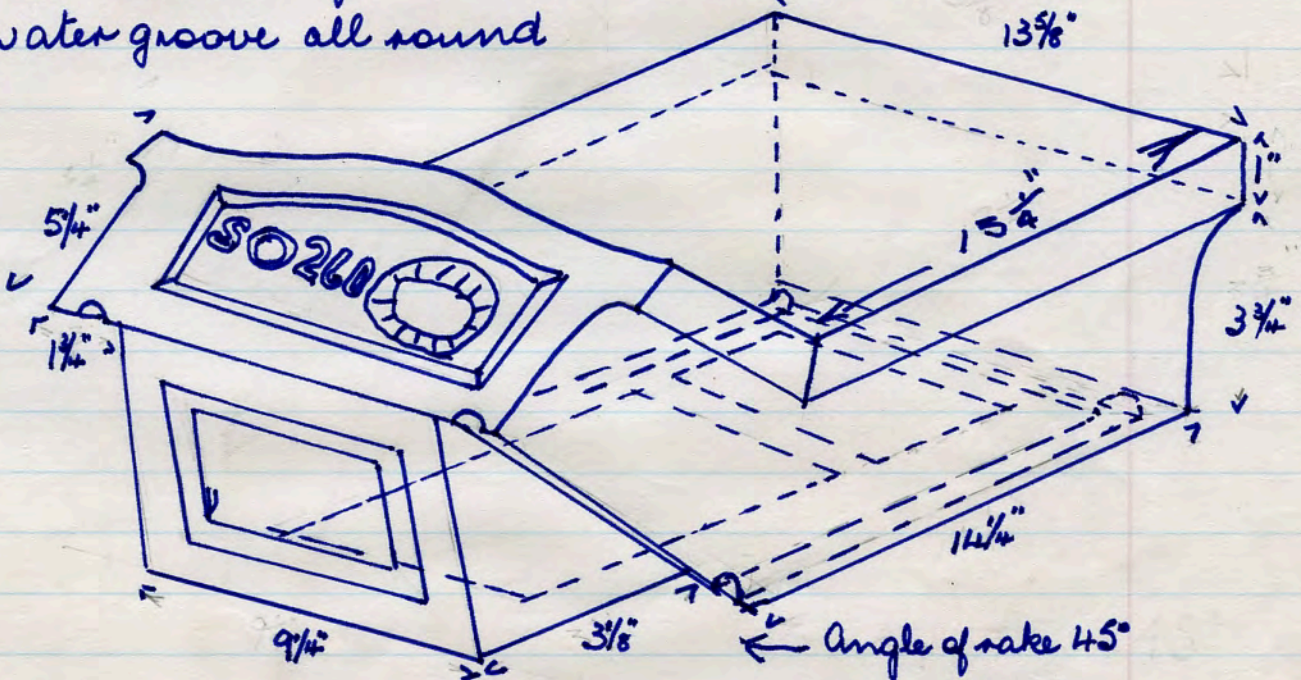 water groove all round
13⅝"
1"
15¼"
5¼"
SO260
1¾"
3¾"
14¼"
9¼"
3⅛"
← Angle of rake 45°